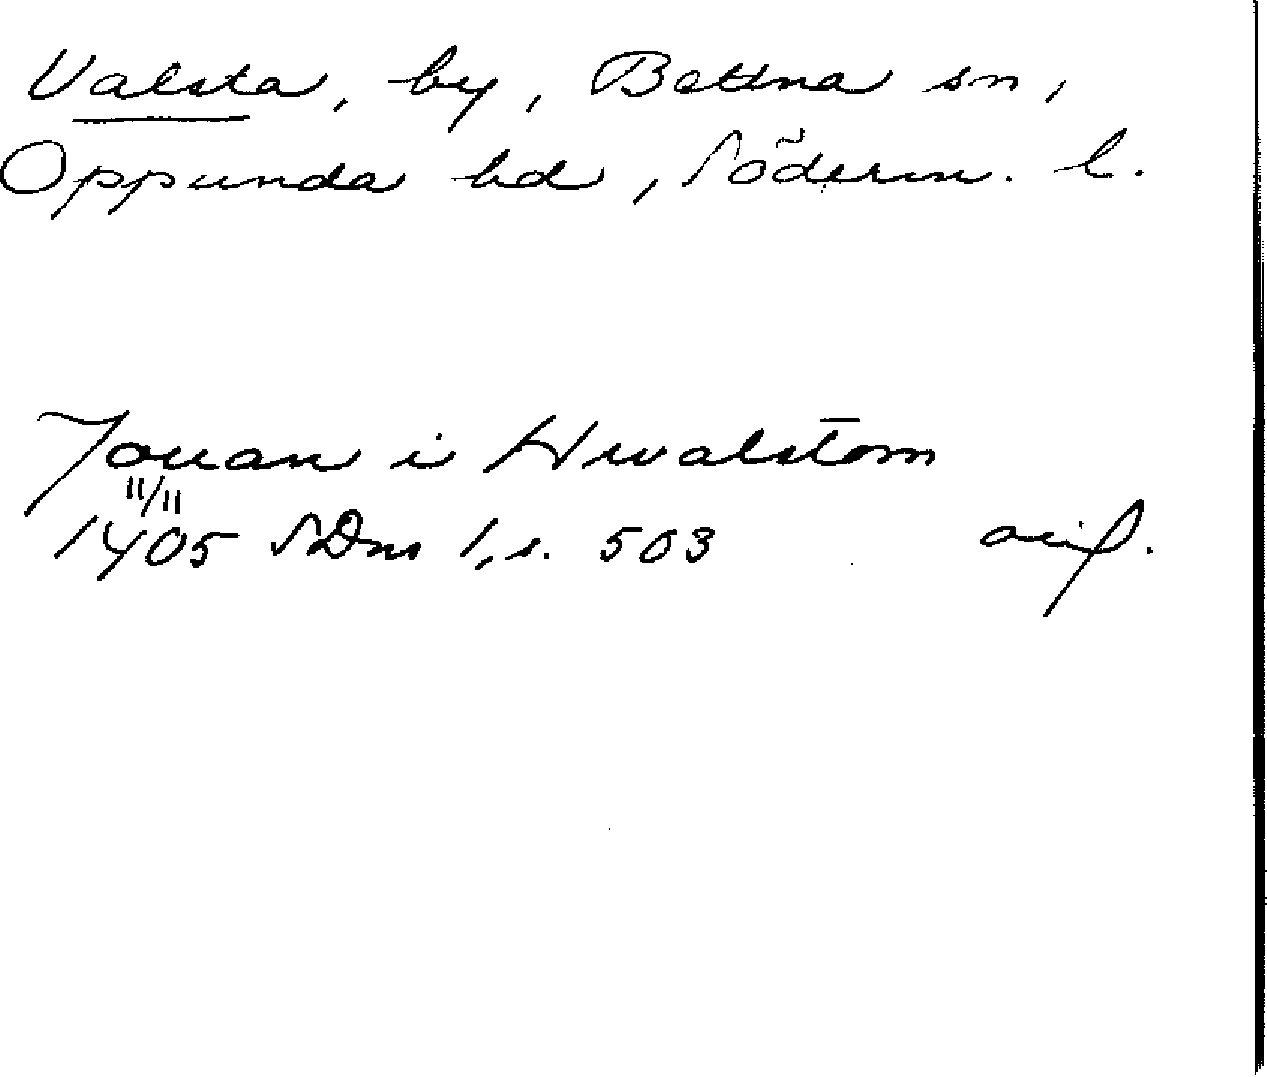 Valsta, by, Bettna sn,
Oppunda hd, Söderm. l.
Jouan i Hwalstom
11/11
1405 SDns 1, s. 503 avif.